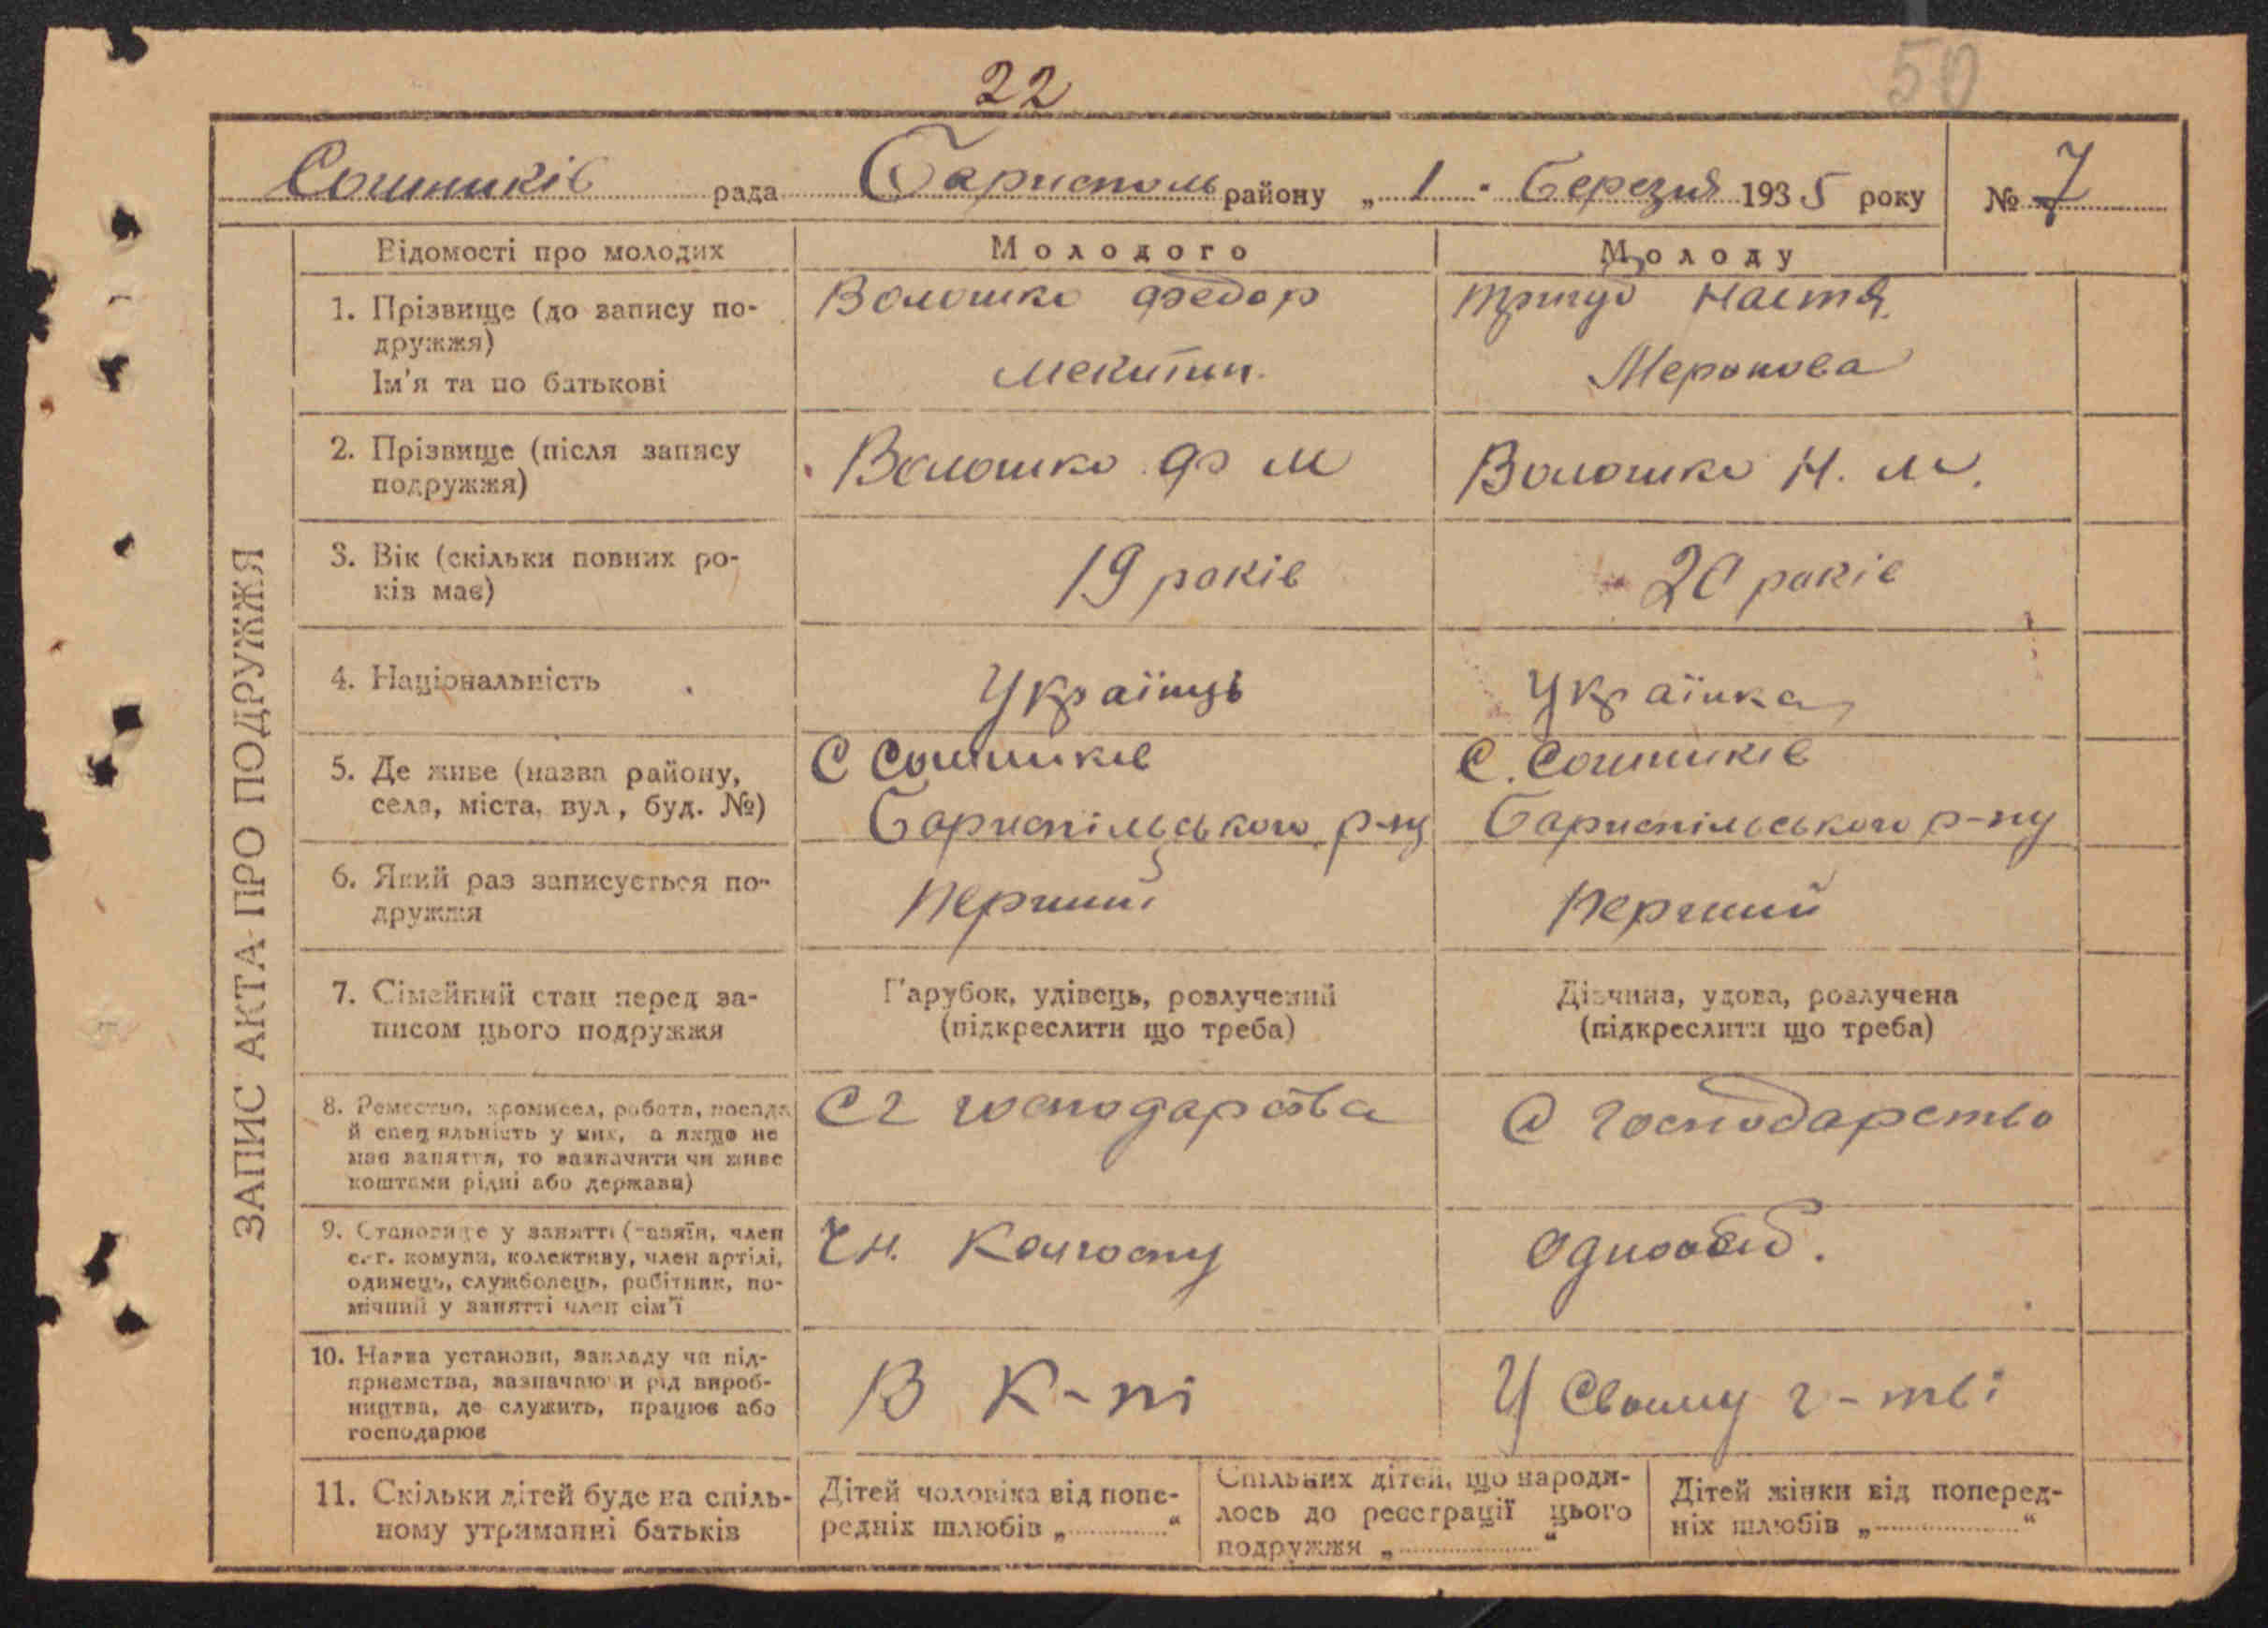 22
50
Сошників рада Бариспол району „ 1 " березня 1935 року № 7
ЗАПИС АКТА ПРО ПОДРУЖЖЯ
Відомості про молодих
Молодого
Молоду
1. Прізвище (до запису по-
дружжя)
Ім'я та по батькові
Волошко Федор
Мекитин.
Настя
Меронова
2. Прізвище (після запису
подружжя)
Волошко Ф М
Волошко Н. М.
3. Вік (скільки повних ро-
ків має)
19 років
20 років
4. Національність
Українць
Українка
5. Де живе (назва району,
села, міста, вул., буд. №)
С Сошників
Бориспільського р-ну
С. Сошників
Бориспільського р-ну
6. Який раз записується по-
дружжя
Перший
Перший
7. Сімейний стан перед за-
писом цього подружжя
Парубок, удівець, розлучений
(підкреслити що треба)
Дівчина, удова, розлучена
(підкреслити що треба)
8. Ремество, промисел, робота, посада
й спеціяльність у них, а якщо не
має заняття, то зазначити чи живе
коштами рідні або держави)
СГ господарства
С господарство
9. Становище у занятті (хазяїн, член
с.-г. комуни, колективу, член артілі,
одинець, службовець, робітник, по-
мічний у занятті член сім'ї
Чл. Колгоспу
Одноосіб.
10. Назва установи, закладу чи під-
приємства, зазначаючи рід вироб-
ництва, де служить, працює або
господарює
В К-пі
У Своему г-тві
11. Скільки дітей буде на спіль-
ному утриманні батьків
Дітей чоловіка від попе-
редніх шлюбів „ “
Спільних дітей, що народи-
лось до реєстрації цього
подружжя „ “
Дітей жінки від поперед-
ніх шлюбів „ “